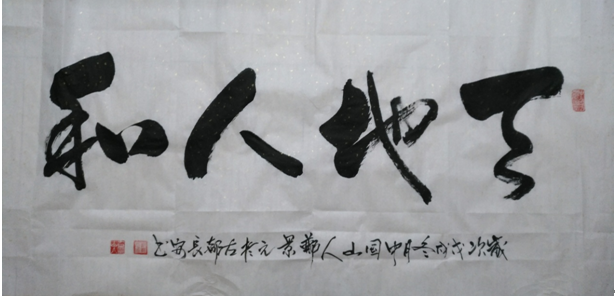 天地人和
岁次戊戌冬月中国山人郭景元於古都长安书